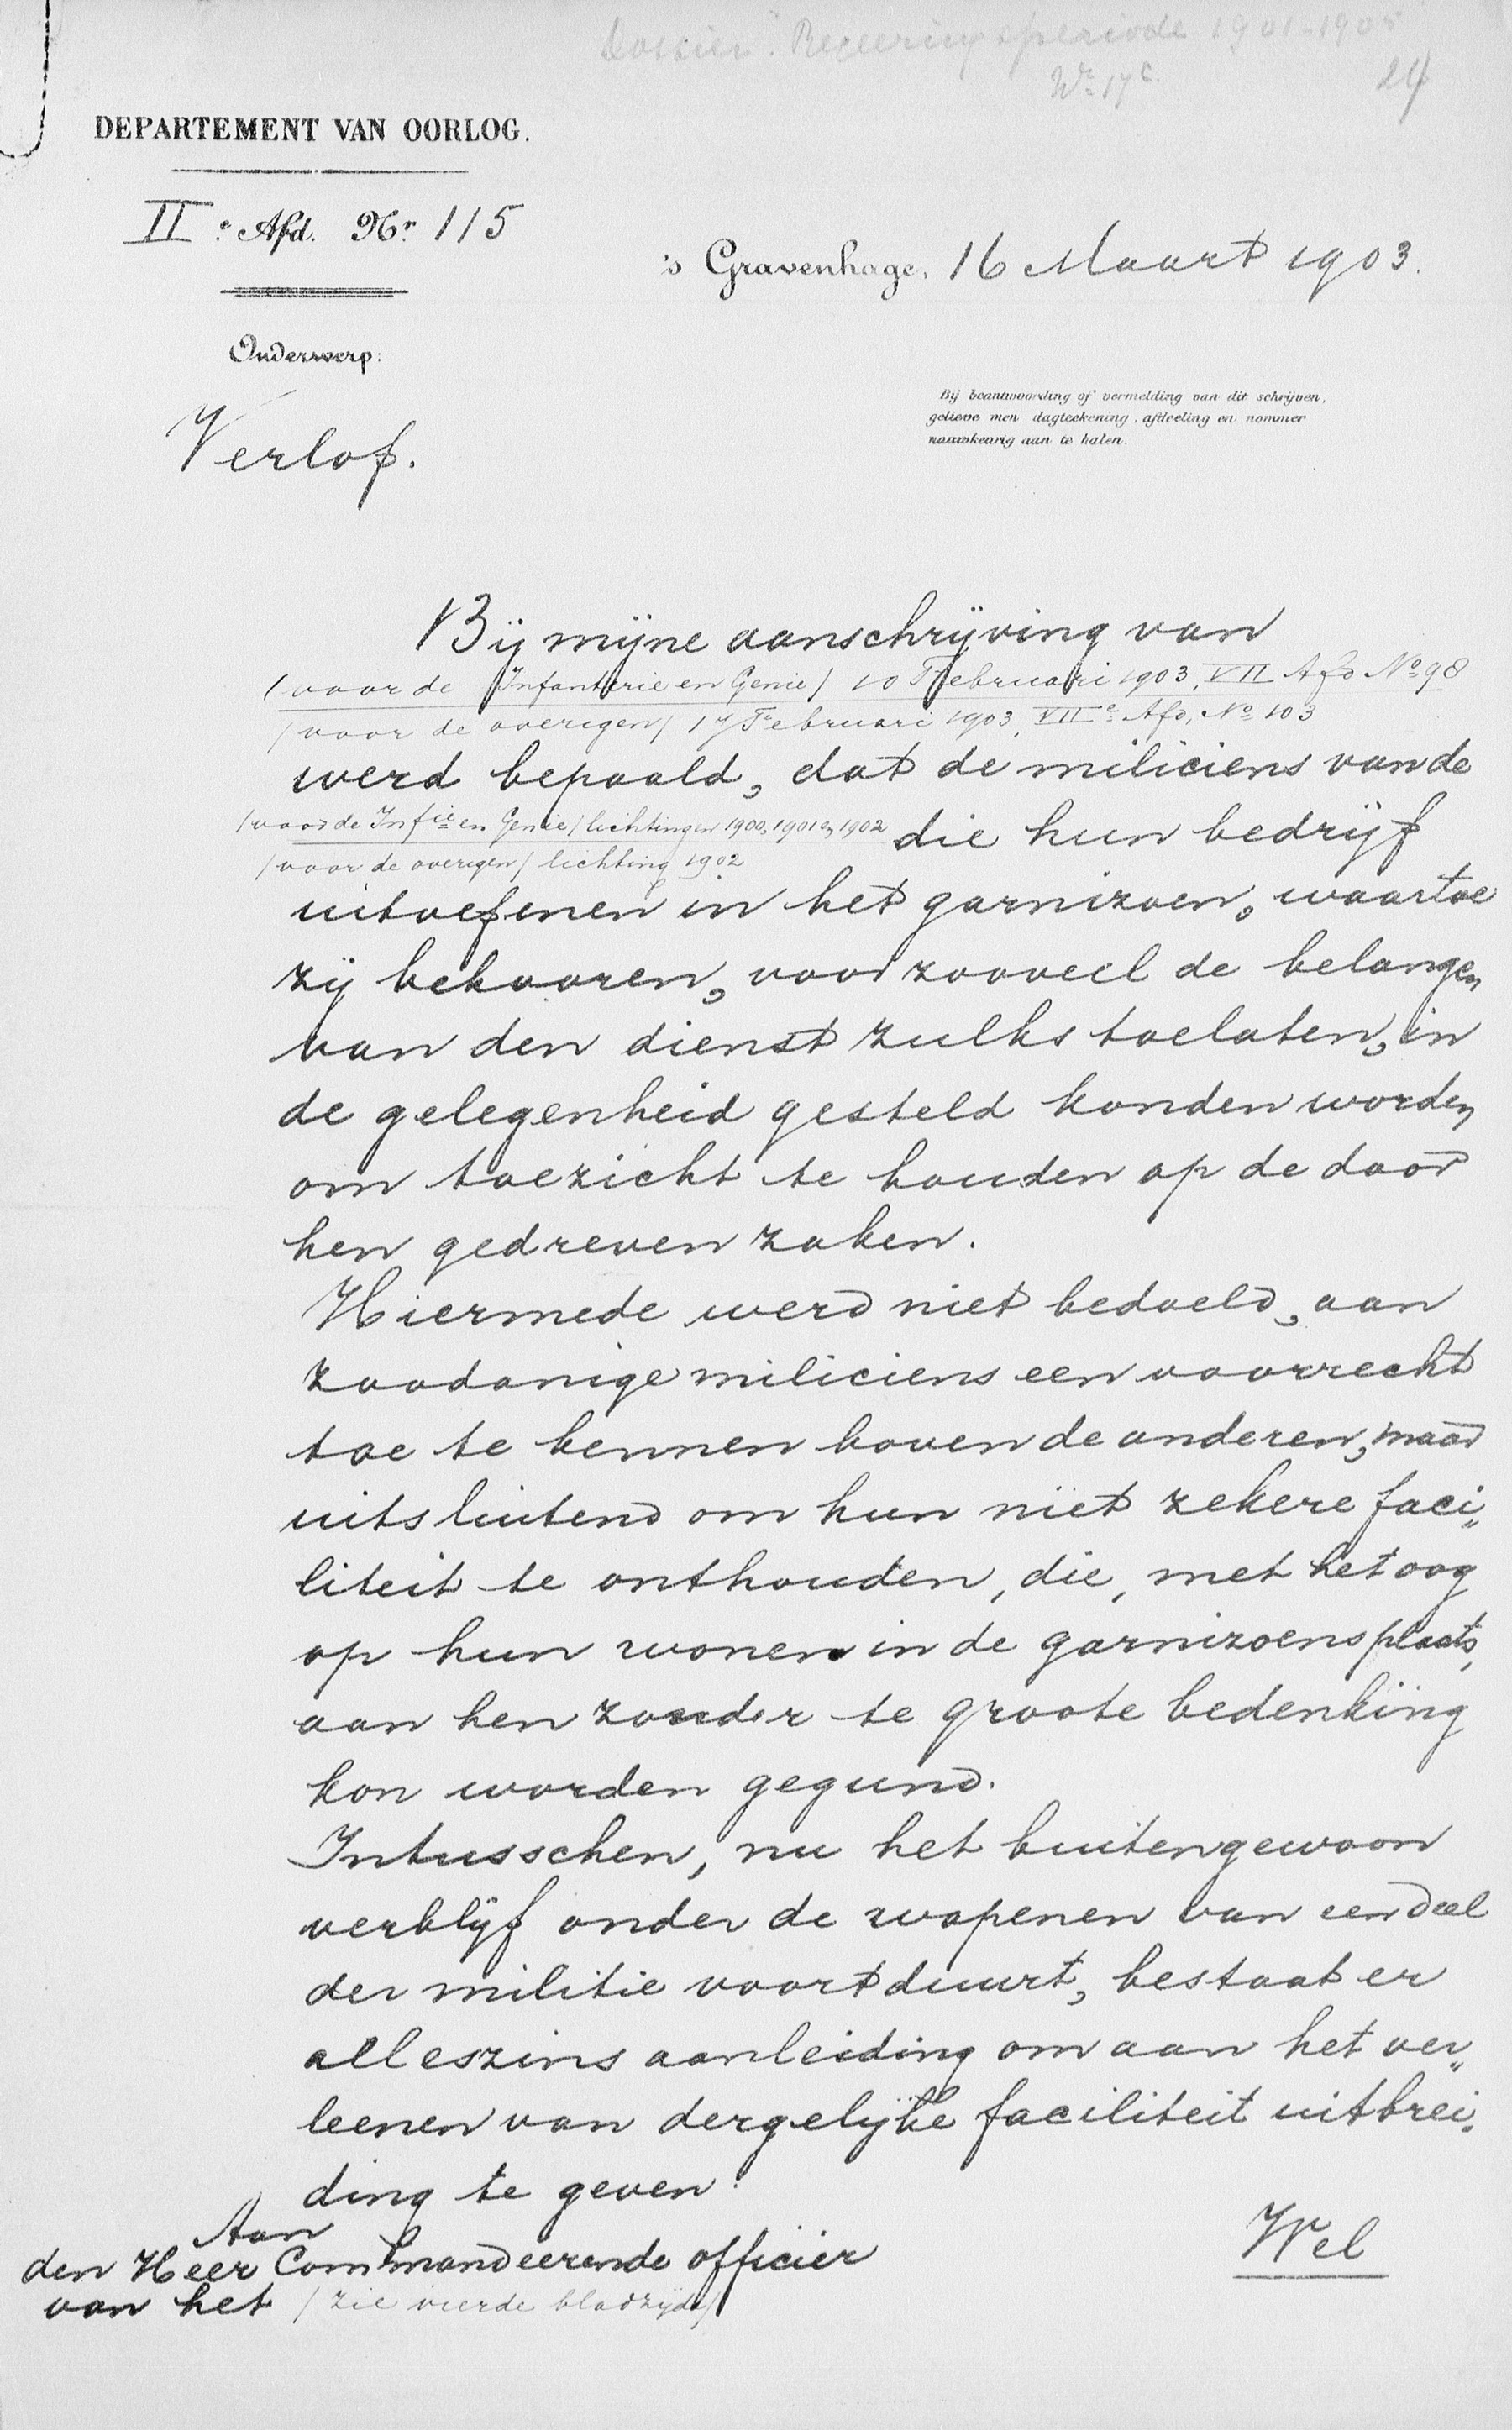 Dossier: Regeeringsperiode 1901-1905
No 17c.
24
DEPARTEMENT VAN OORLOG.
IIe Afd. Nr. 115
's Gravenhage, 16 Maart 1903.
Onderwerp:
Verlof.
Bij beantwoording of vermelding van dit schrijven,
gelieve men dagteekening, afdeeling en nommer
nauwkeurig aan te halen.
Bij mijne aanschrijving van
(voor de Infanterie en Genie) 10 Februari 1903, VII Afd No 98
(voor de overigen) 17 Februari 1903, VIIe Afd, No 103
werd bepaald, dat de miliciens van de
(voor de Infie en Genie) lichtingen 1900, 1901 en 1902 die hun bedrijf
(voor de overigen) lichting 1902
uitoefenen in het garnizoen, waartoe
zij behooren, voor zooveel de belangen
van den dienst zulks toelaten, in
de gelegenheid gesteld konden worden
om toezicht te houden op de door
hen gedreven zaken.
Hiermede werd niet bedoeld, aan
zoodanige miliciens een voorrecht
toe te kennen boven de anderen, maar
uitsluitend om hun niet zekere faci„
liteit te onthouden, die, met het oog
op hun wonen in de garnizoensplaats,
aan hen zonder te groote bedenking
kon worden gegund.
Intusschen, nu het buitengewoon
verblijf onder de wapenen van een deel
der militie voortduurt, bestaat er
alleszins aanleiding om aan het ver„
leenen van dergelijke faciliteit uitbrei„
ding te geven.
Wel
Aan
den Heer Commandeerende officier
van het (zie vierde bladzijde)